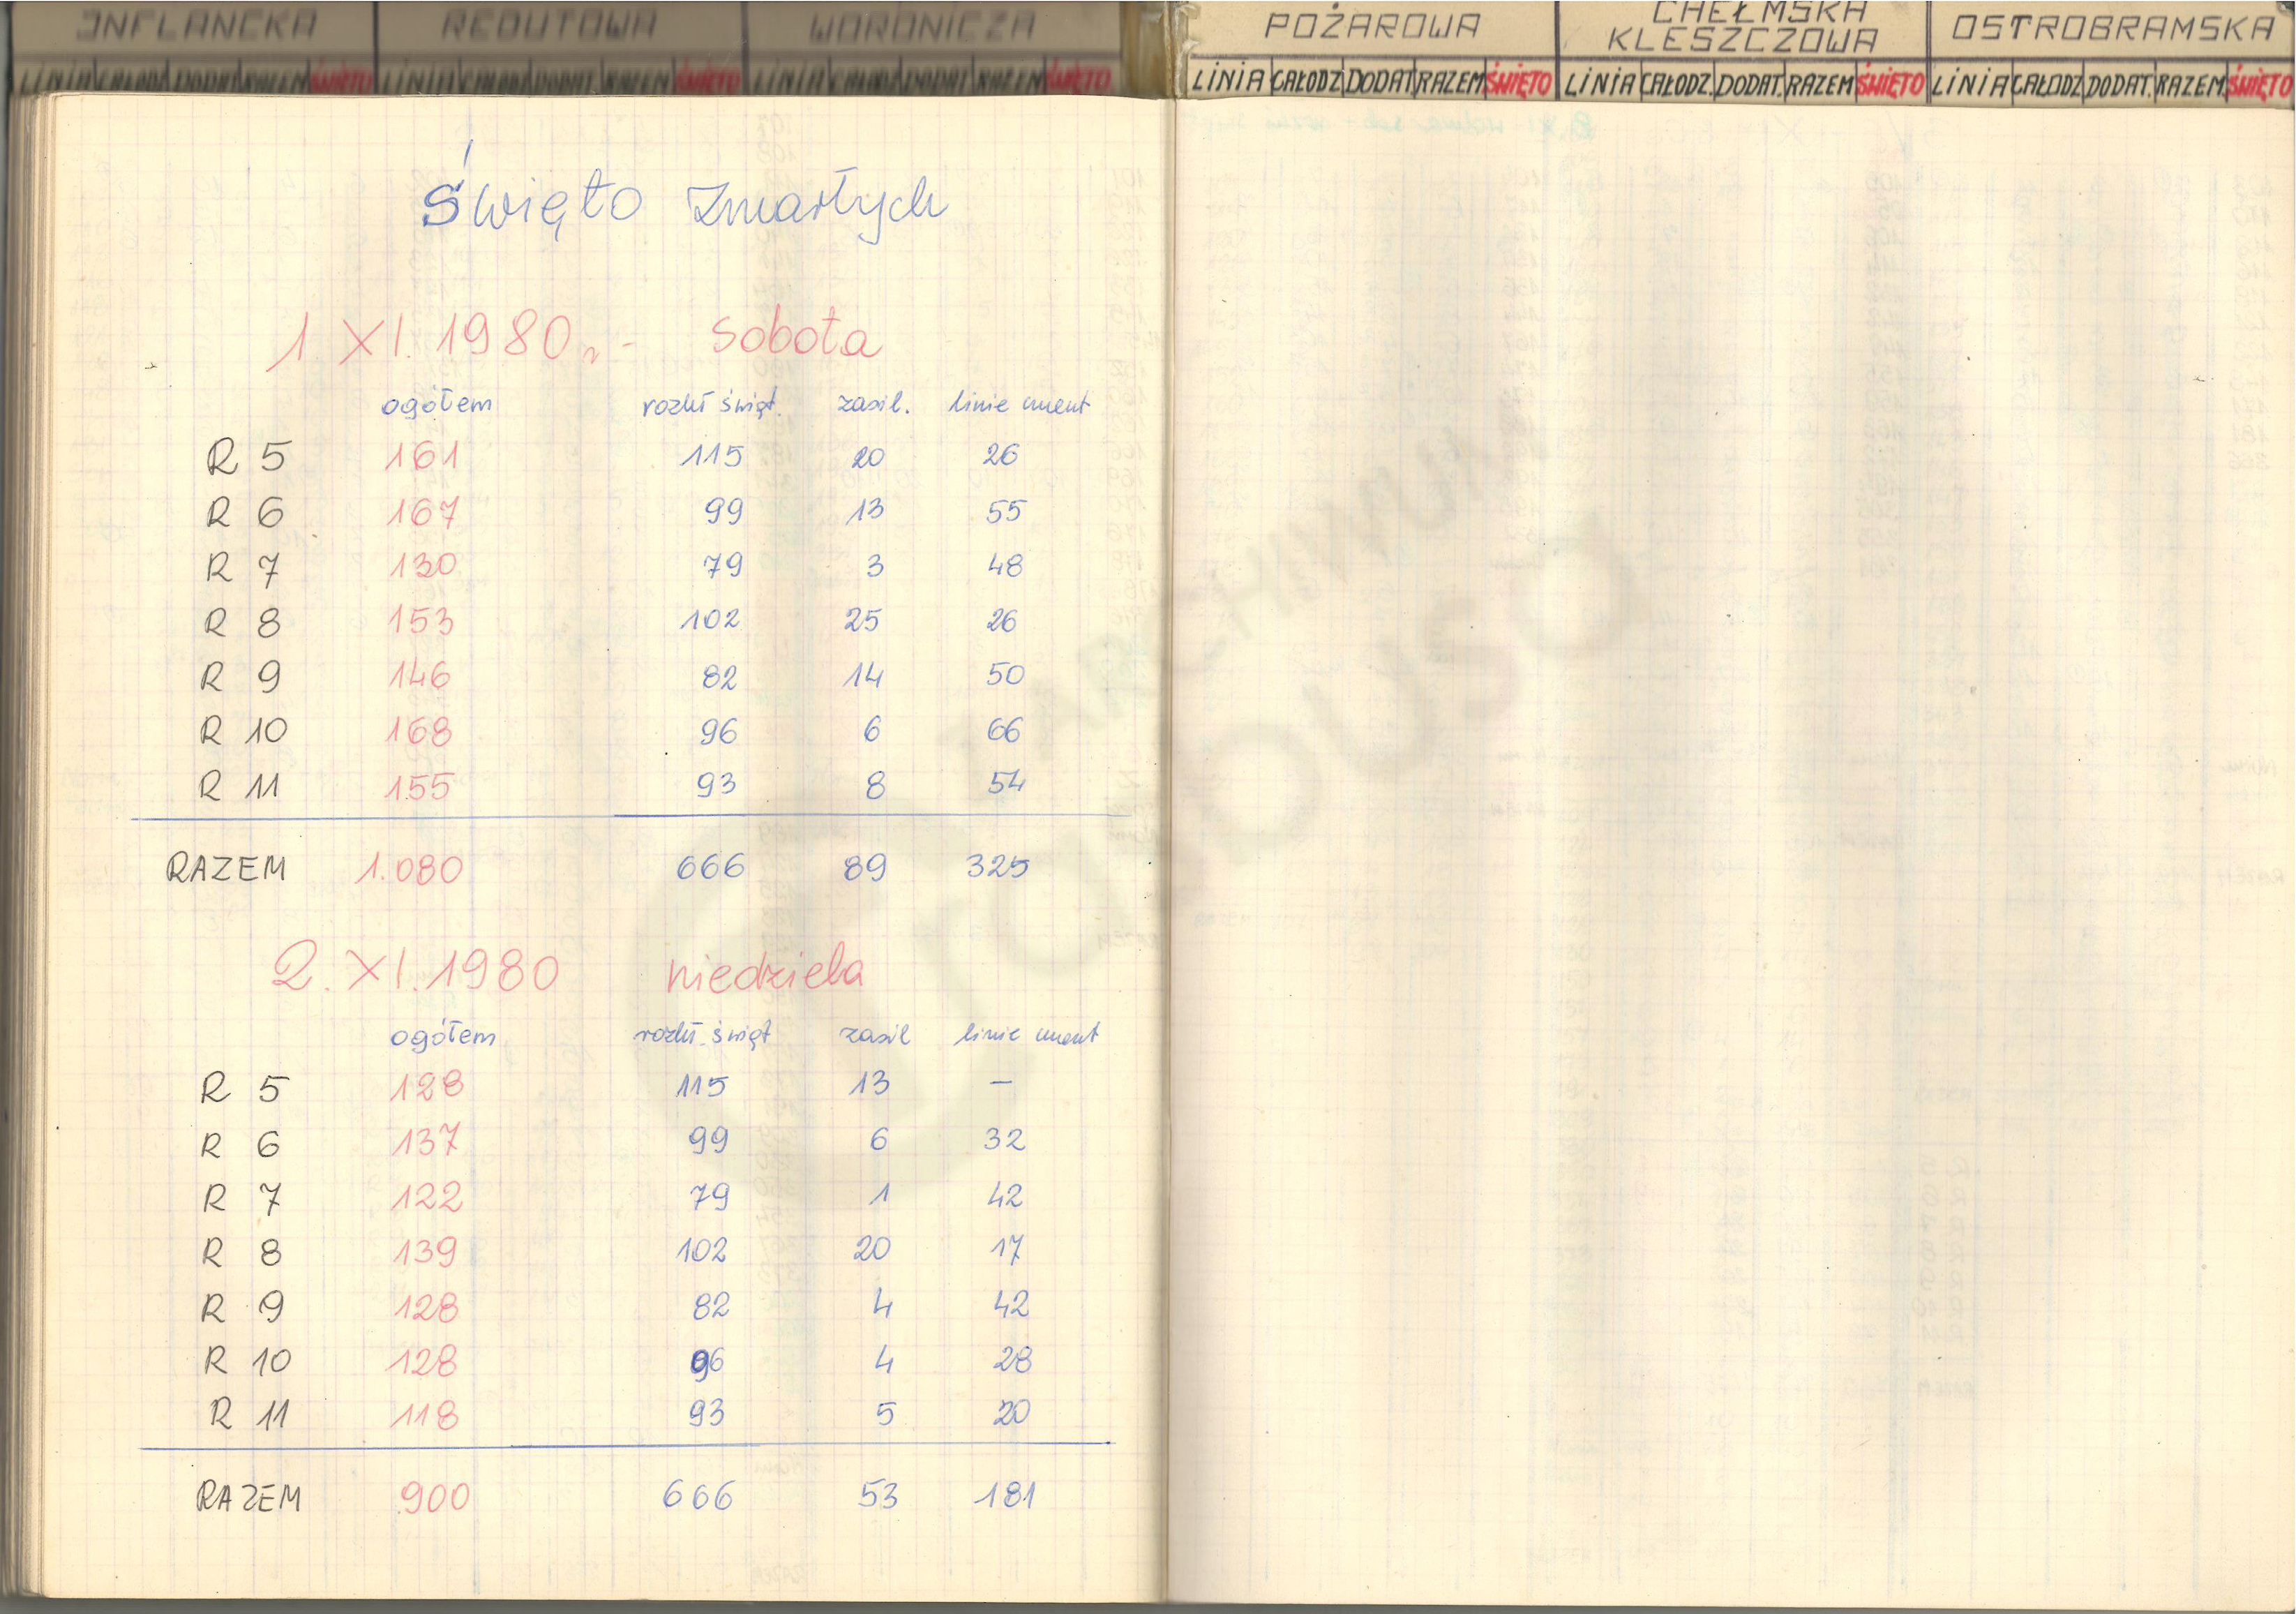 INFLANCKA REDUTOWA WORONICZA POŻAROWA CHEŁMSKA KLESZCZOWA OSTROBRAMSKA
LINIA CAŁODZ DODAT. RAZEM ŚWIĘTO LINIA CAŁODZ DODAT RAZEM ŚWIĘTO LINIA CAŁODZ DODAT. RAZEM ŚWIĘTO LINIA CAŁODZ DODAT RAZEM ŚWIĘTO LINIA CAŁODZ. DODAT. RAZEM ŚWIĘTO LINIA CAŁODZ DODAT. RAZEM ŚWIĘTO
Święto Zmarłych
1. XI. 1980r. - sobota
ogółem rozkł świąt. zasil. linie cment
R 5 161 115 20 26
R 6 167 99 13 55
R 7 130 79 3 48
R 8 153 102 25 26
R 9 146 82 14 50
R 10 168 96 6 66
R 11 155 93 8 54
RAZEM 1.080 666 89 325
2. XI. 1980 niedziela
ogółem rozkł. świąt zasil linie cment
R 5 128 115 13 —
R 6 137 99 6 32
R 7 122 79 1 42
R 8 139 102 20 17
R 9 128 82 4 42
R 10 128 96 4 28
R 11 118 93 5 20
RAZEM 900 666 53 181